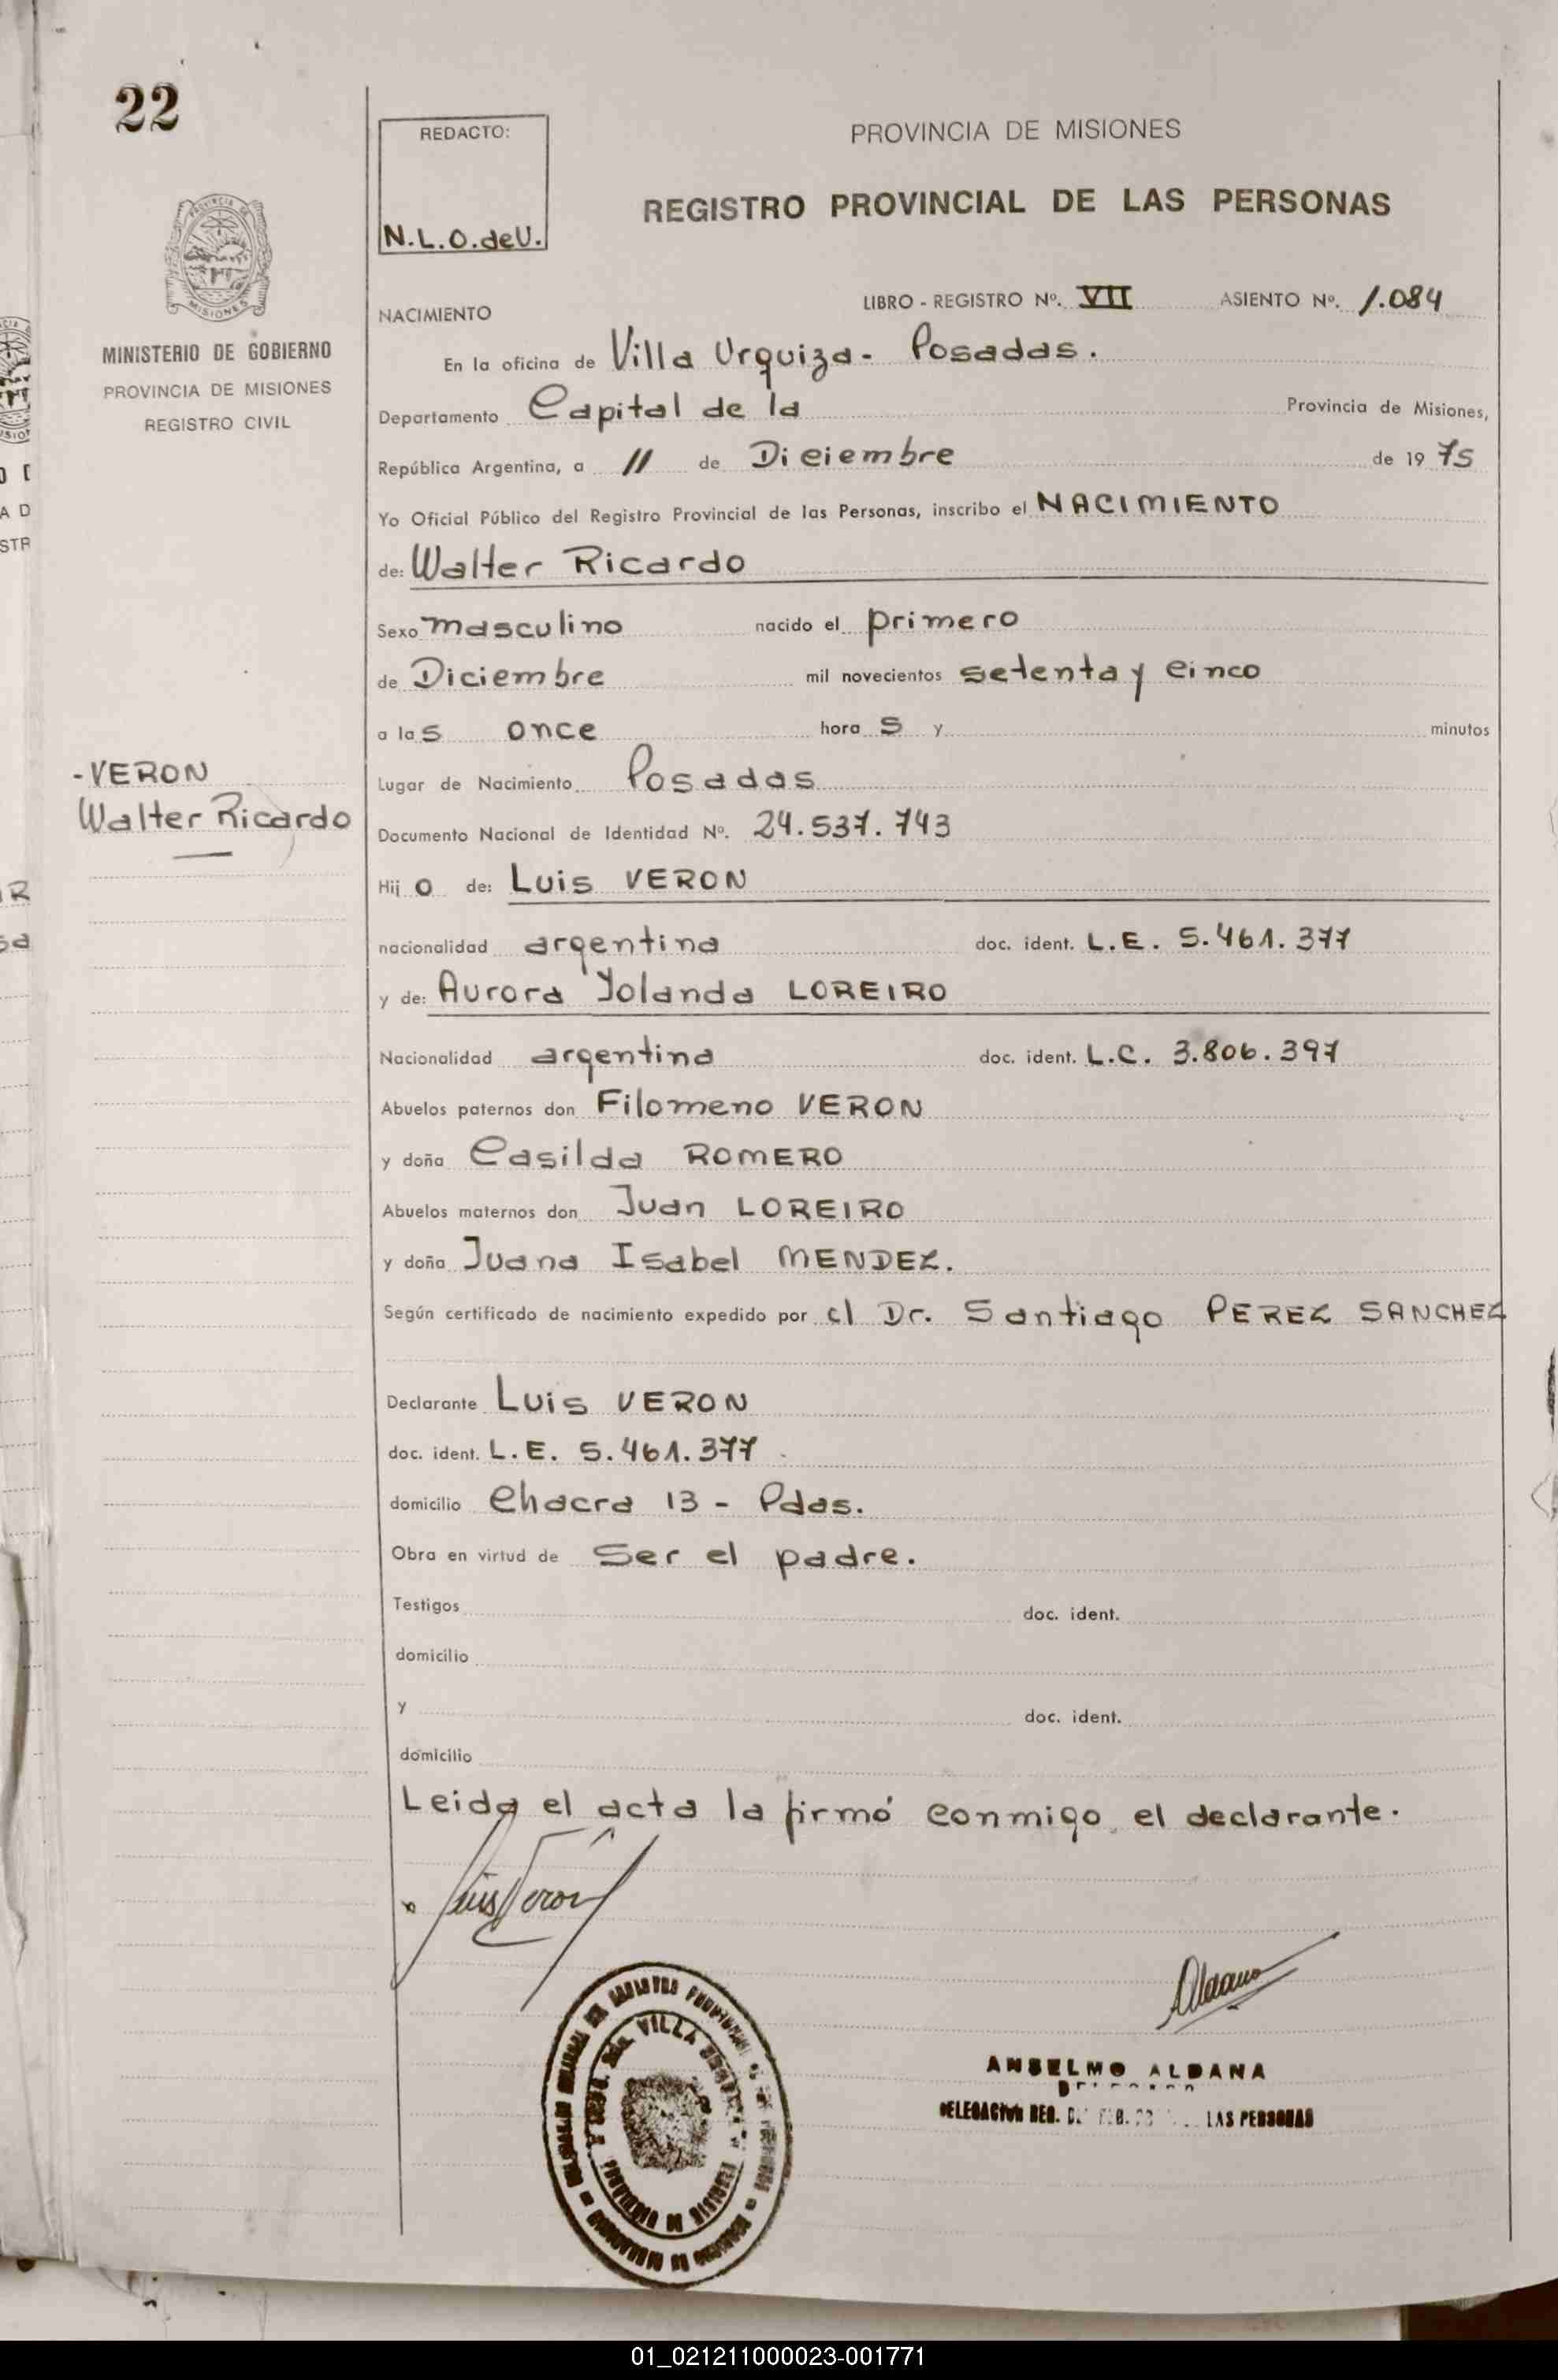 22
REDACTO:
N.L.O.deU.
PROVINCIA DE MISIONES
REGISTRO PROVINCIAL DE LAS PERSONAS
MINISTERIO DE GOBIERNO
PROVINCIA DE MISIONES
REGISTRO CIVIL
LIBRO - REGISTRO Nº. VII ASIENTO Nº. 1.084
NACIMIENTO
En la oficina de Villa Urquiza - Posadas.
Departamento Capital de la Provincia de Misiones,
República Argentina, a 11 de Diciembre de 1975
Yo Oficial Público del Registro Provincial de las Personas, inscribo el NACIMIENTO
de: Walter Ricardo
Sexo masculino nacido el primero
de Diciembre mil novecientos setenta y cinco
a las once horas y minutos
-VERON
Walter Ricardo
Lugar de Nacimiento Posadas
Documento Nacional de Identidad Nº. 24.537.743
Hijo de: Luis VERON
nacionalidad argentina doc. ident. L.E. 5.461.377
y de: Aurora Yolanda LOREIRO
Nacionalidad argentina doc. ident. L.C. 3.806.397
Abuelos paternos don Filomeno VERON
y doña Casilda ROMERO
Abuelos maternos don Juan LOREIRO
y doña Juana Isabel MENDEZ.
Según certificado de nacimiento expedido por el Dr. Santiago PEREZ SANCHEZ
Declarante Luis VERON
doc. ident. L.E. 5.461.377
domicilio Chacra 13 - Pdas.
Obra en virtud de Ser el padre.
Testigos doc. ident.
domicilio
y doc. ident.
domicilio
Leida el acta la firmó conmigo el declarante.
Luis Veron
Aldana
ANSELMO ALDANA
DELEGACION REG. LAS PERSONAS
VILLA
01_021211000023-001771